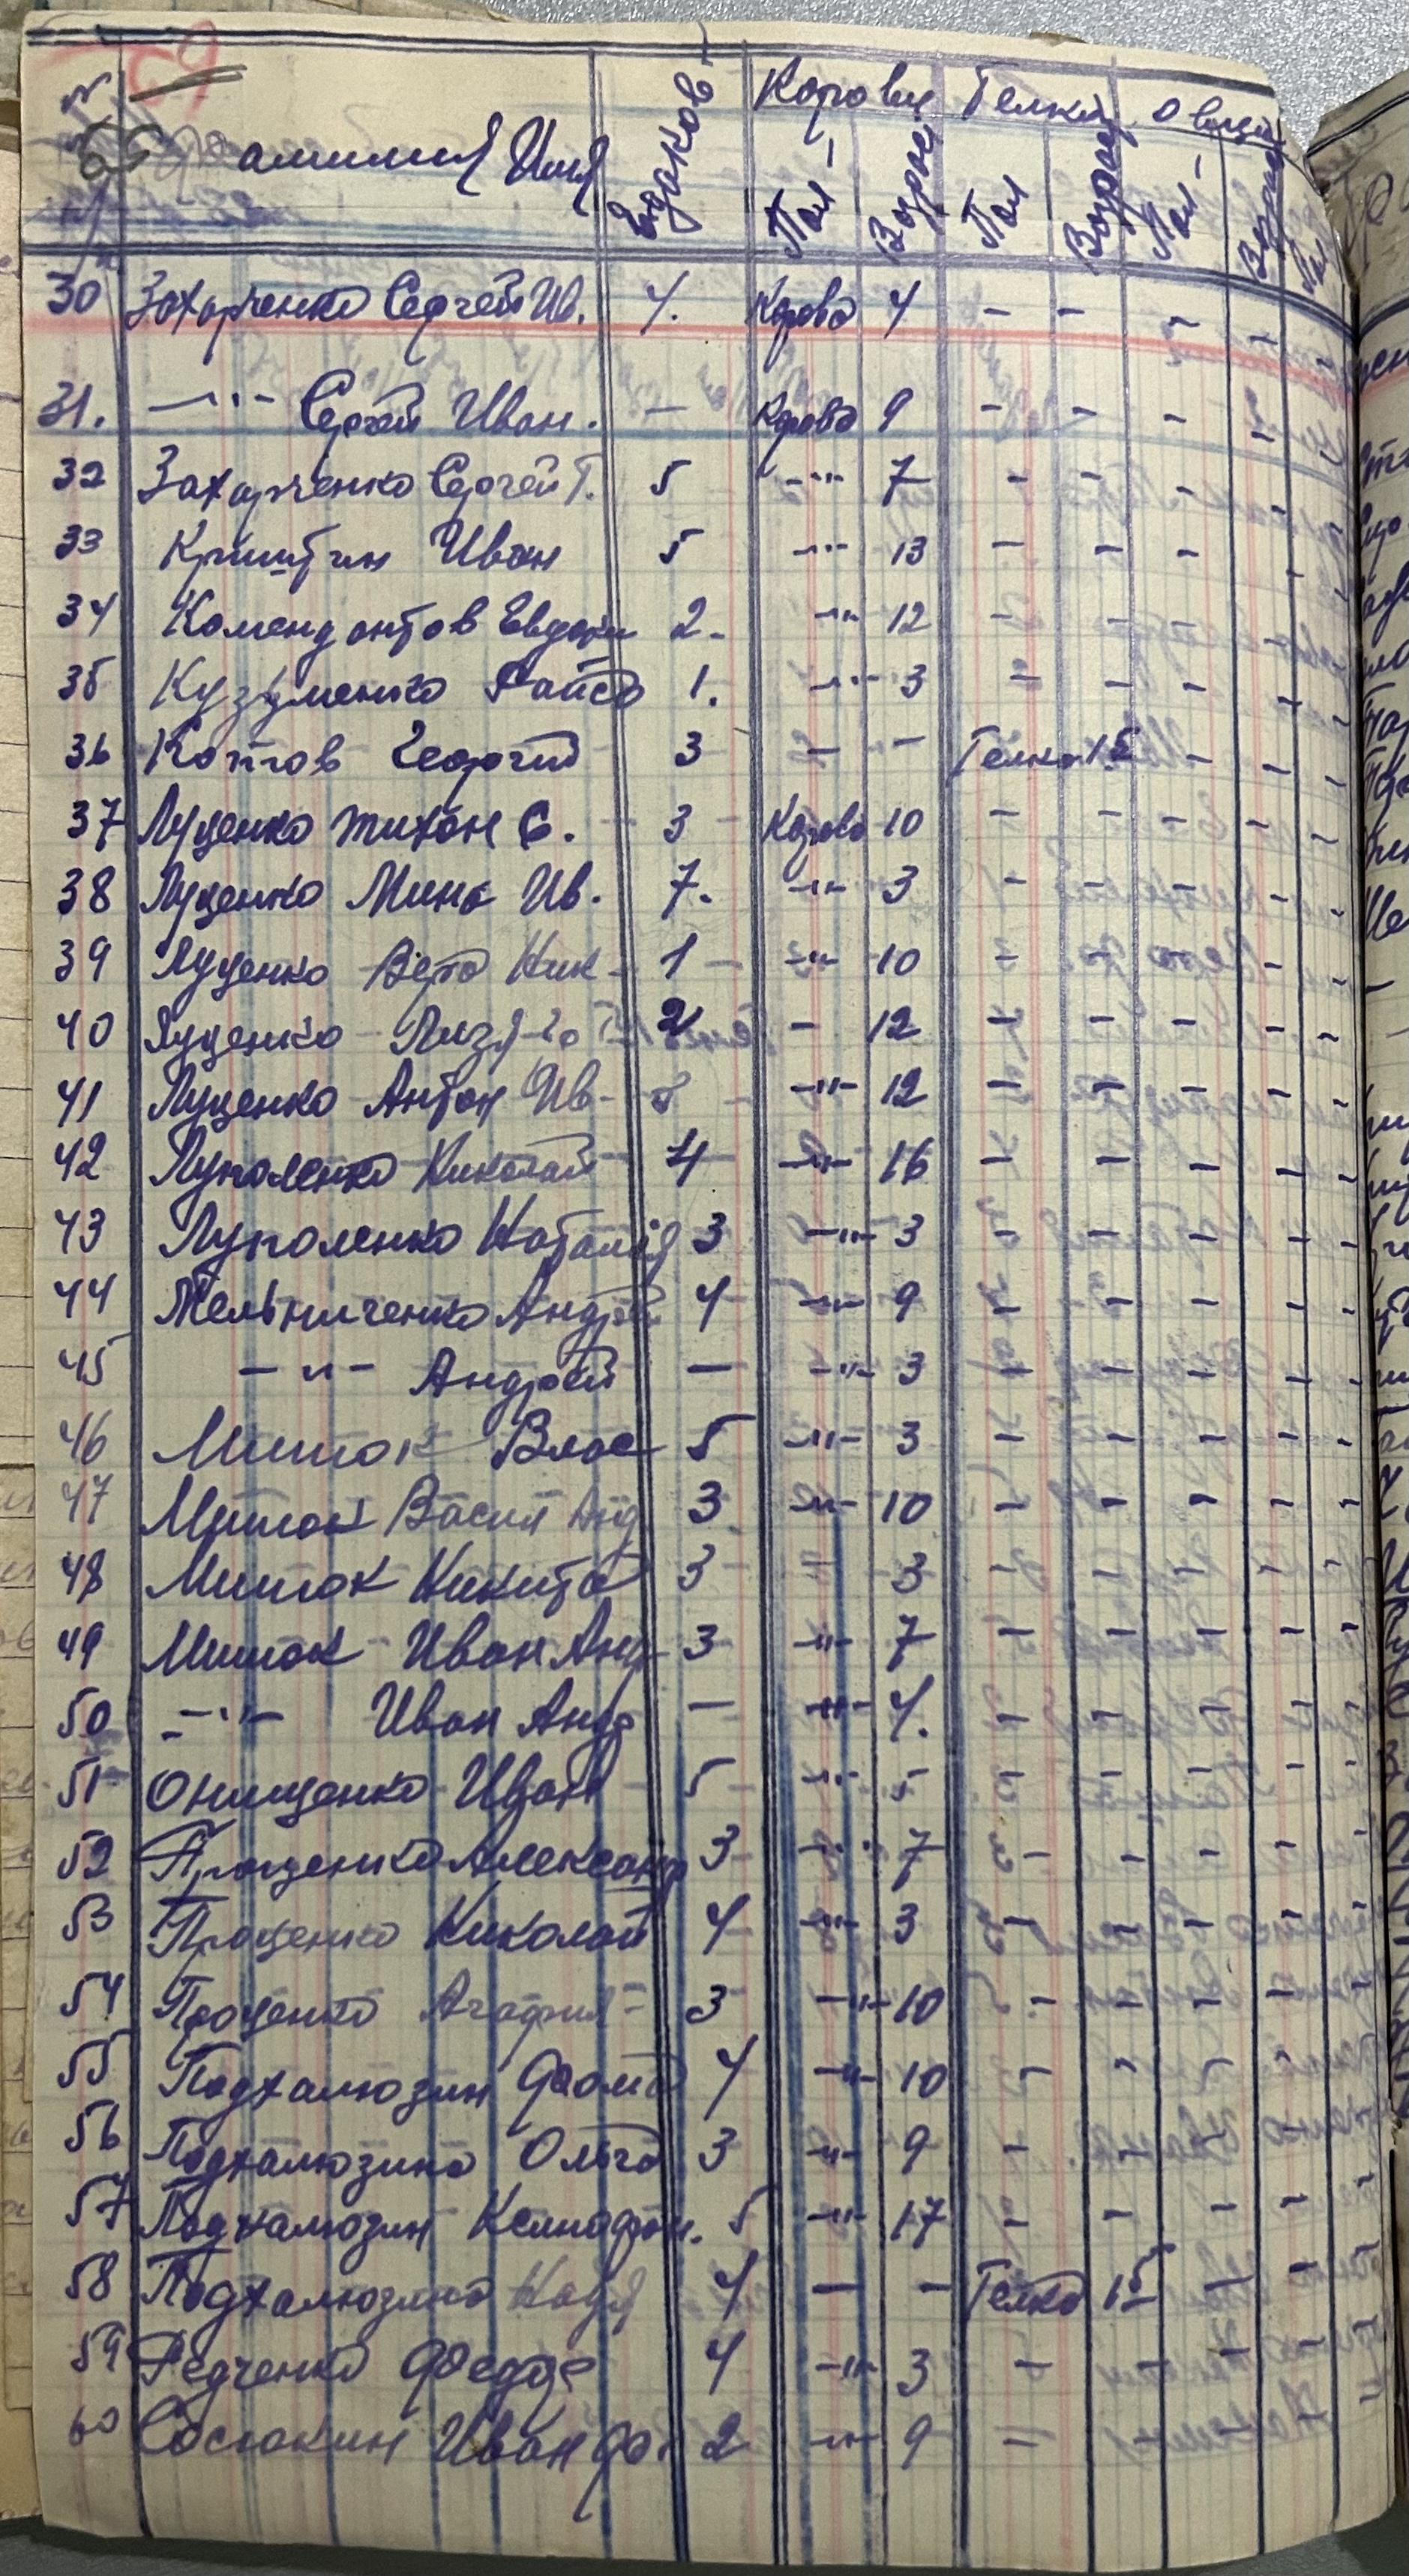 59
Фамилия Имя Едаков Коровы Телки Овцы
Пол Возрас Пол Возрас Пол
30 Захарченко Сергей Ив. 4. Корова 4 - - - - -
31. -"- Сергей Иван. - Корова 9 - - - - -
32 Захарченко Сергей Т. 5 -"- 7 - - - - -
33 Криштин Иван 5 -"- 13 - - - - -
34 Комендантов Евдоким 2. -"- 12 - - - - -
35 Кузьменко Раиса 1. -"- 3 - - - - -
36 Котов Георгий 3 - - Телка 1.5 - - -
37 Луценко Тихон С. 3 Корова 10 - - - - -
38 Луценко Мина Ив. 7. -"- 3 - - - - -
39 Луценко Вера Ник - 1 -"- 10 - - - -
40 Луценко - 2 - 12 - - - - -
41 Луценко Антон Ив - 5 -"- 12 - - - - -
42 Луполенко Николай 4 -"- 16 - - - - -
43 Луполенко Наталия 3 -"- 3 - - - - -
44 Мельниченко Андрей 4 -"- 9 - - - - -
45 -"- Андрей - -"- 3 - - - - -
46 Мишок Влас 5 -"- 3 - - - - -
47 Мишок Васил Анд 3 -"- 10 - - - - -
48 Мишок Никита 3 = 3 - - - - -
49 Мишок Иван Анд 3 -"- 7 - - - - -
50 -"- Иван Андр - -"- 4. - - - - -
51 Онищенко Иван 5 -"- 5 - - - - -
52 Проценко Александр 3 -"- 7 - - - - -
53 Проценко Николай 4 -"- 3 - - - - -
54 Проценко Агафия 3 -"- 10 - - - - -
55 Подхалюзин Фома 4 -"- 10 - - - - -
56 Подхалюзина Ольга 3 -"- 9 - - - - -
57 Подхалюзин Ксинафон. 5 -"- 17 - - - - -
58 Подхалюзина Надя 4 - - Телка 15 - - -
59 Редченко Федор 4 -"- 3 - - - -
60 Сосюкин Иван Фо. 2 -"- 9 -